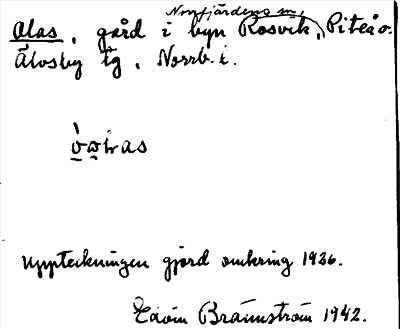 Norrfjärdens sn,
Olas, gård i byn Rosvik, Piteå o.
Älvsby tg, Norrb. l.
Uppteckningen gjord omkring 1936.
Edvin Brännström 1942.